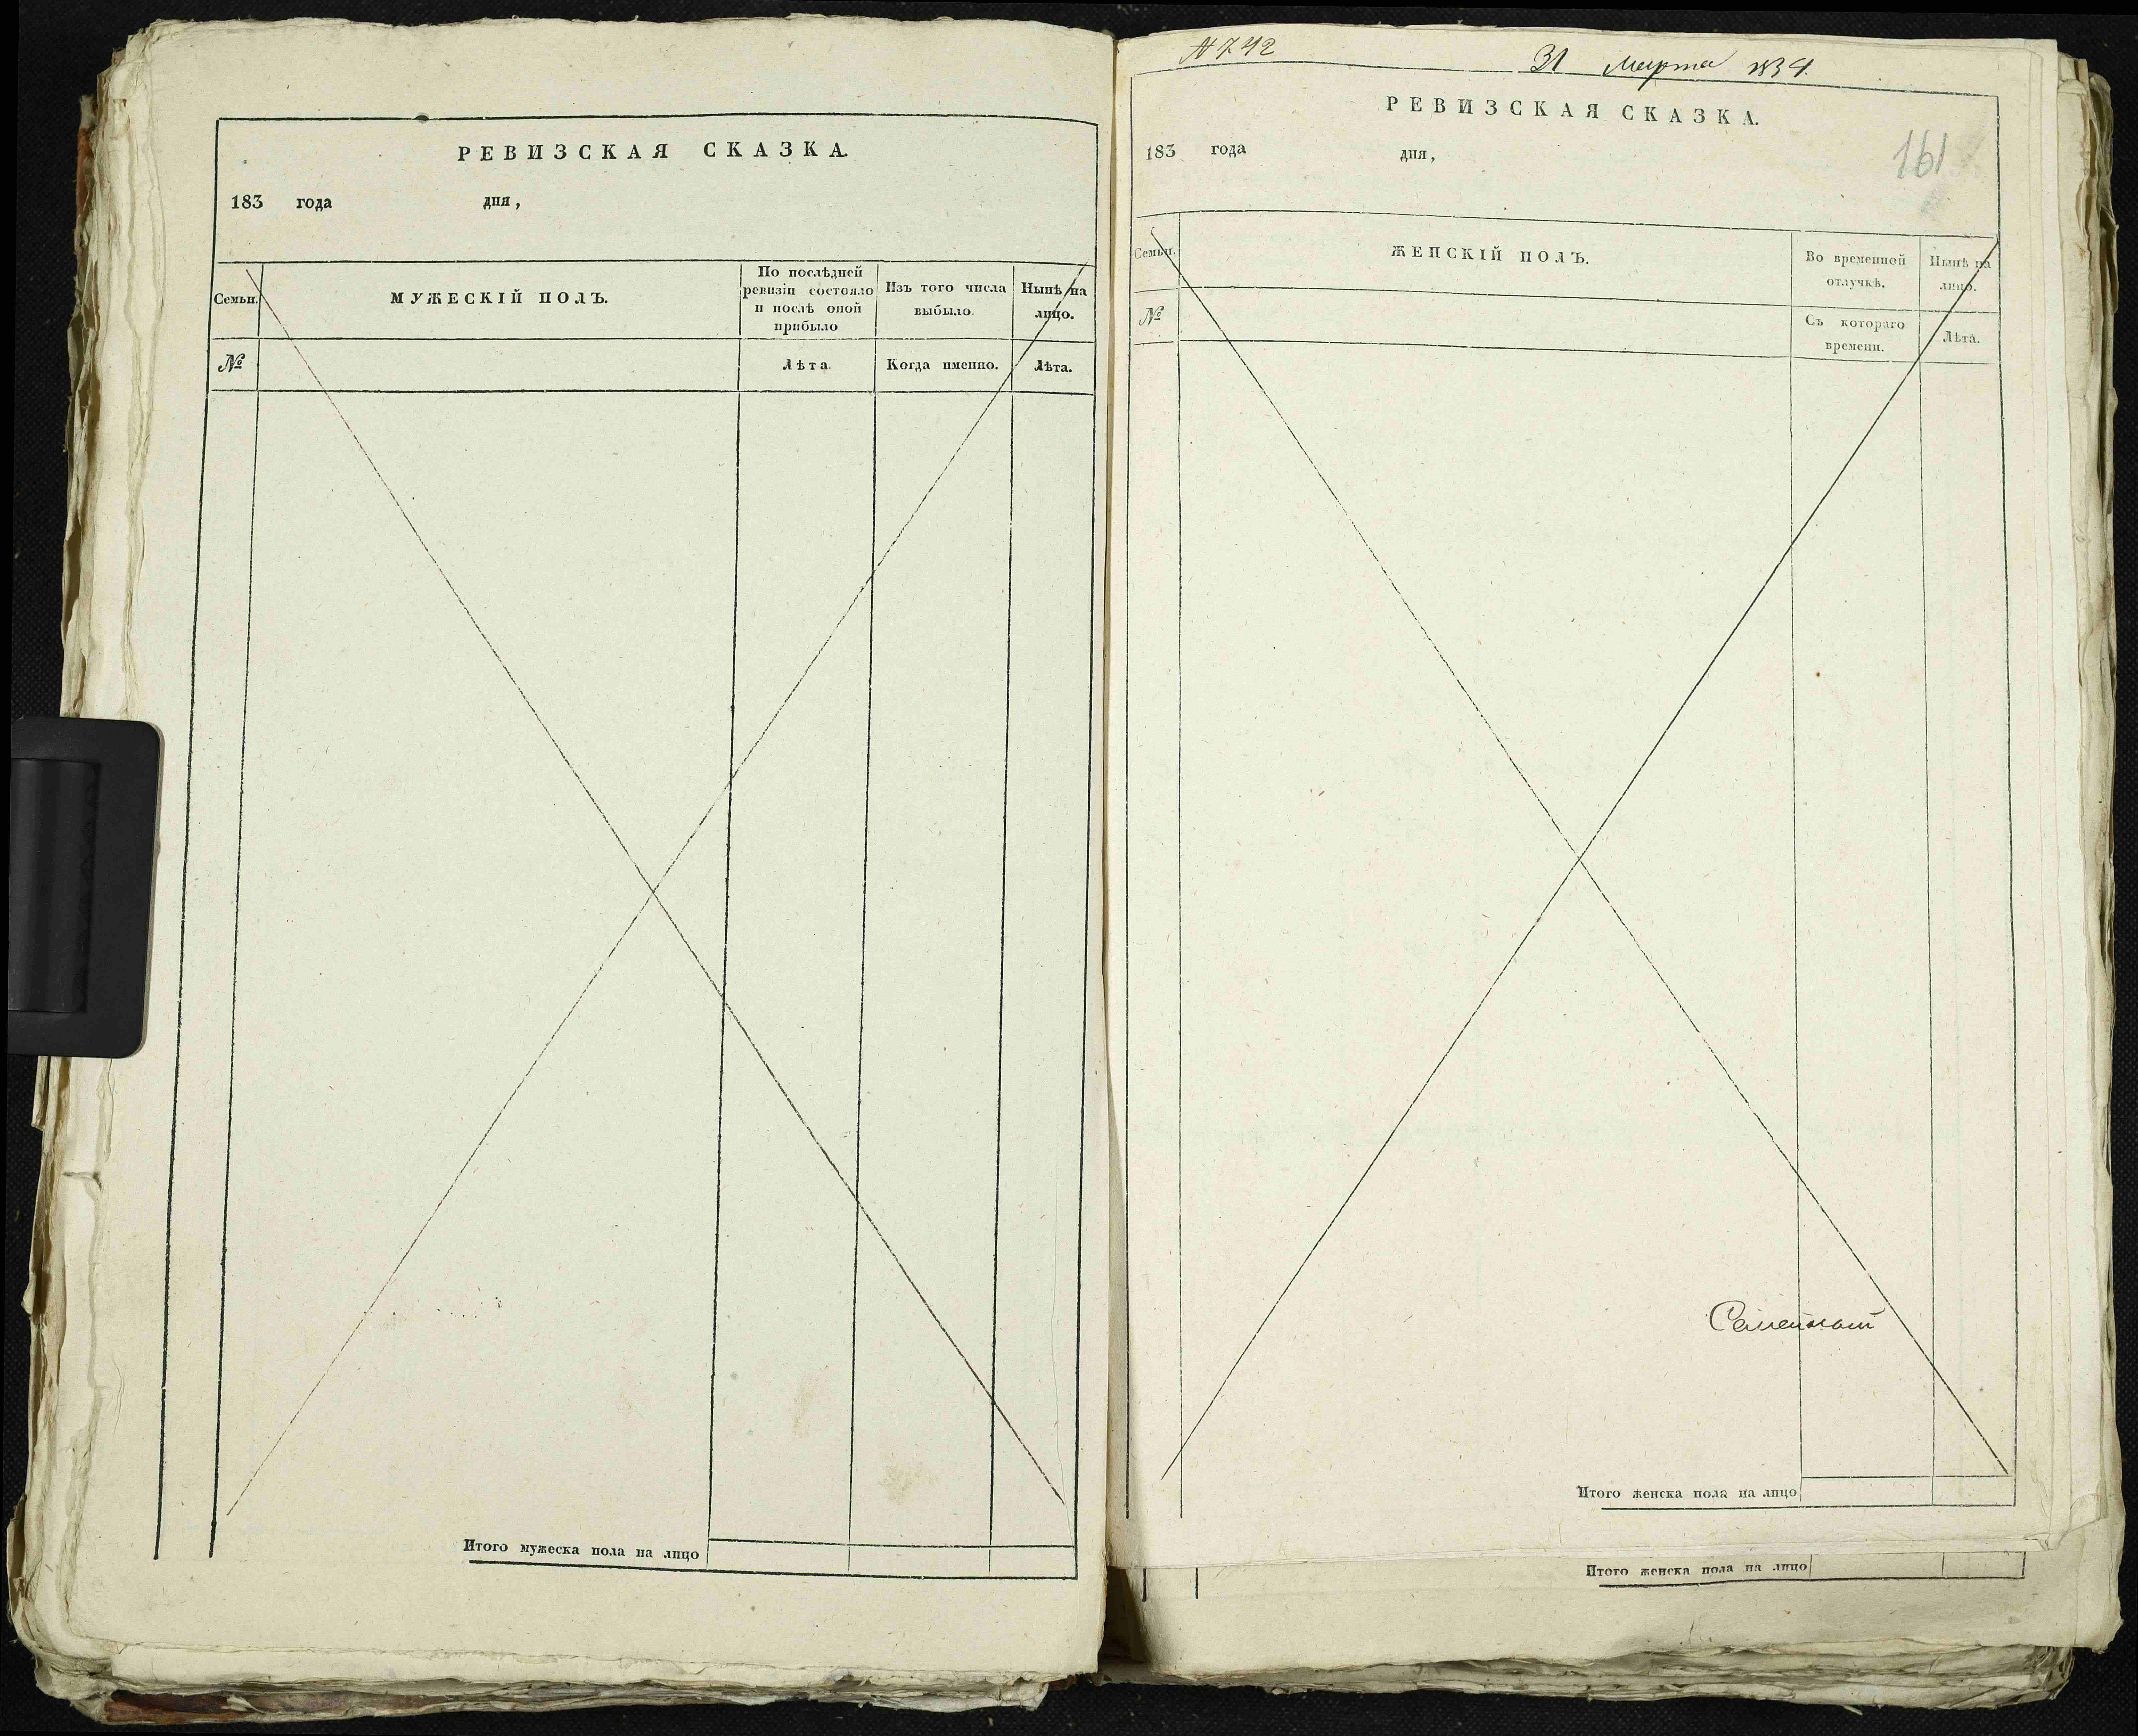 РЕВИЗСКАЯ СКАЗКА.
183 года дня,
Семьи.
МУЖЕСКІЙ ПОЛЪ.
По послѣдней
ревизіи состояло
и послѣ оной
прибыло
Изъ того числа
выбыло.
Нынѣ на
лицо.
№
Лѣта.
Когда именно.
Лѣта.
Итого мужеска пола на лицо
N 742
31 Марта 1834.
РЕВИЗСКАЯ СКАЗКА.
161
183 года дня,
Семьи.
ЖЕНСКІЙ ПОЛЪ.
Во временной
отлучкѣ.
Нынѣ на
лицо.
№
Съ котораго
времени.
Лѣта.
Итого женска пола на лицо
Итого женска пола на лицо